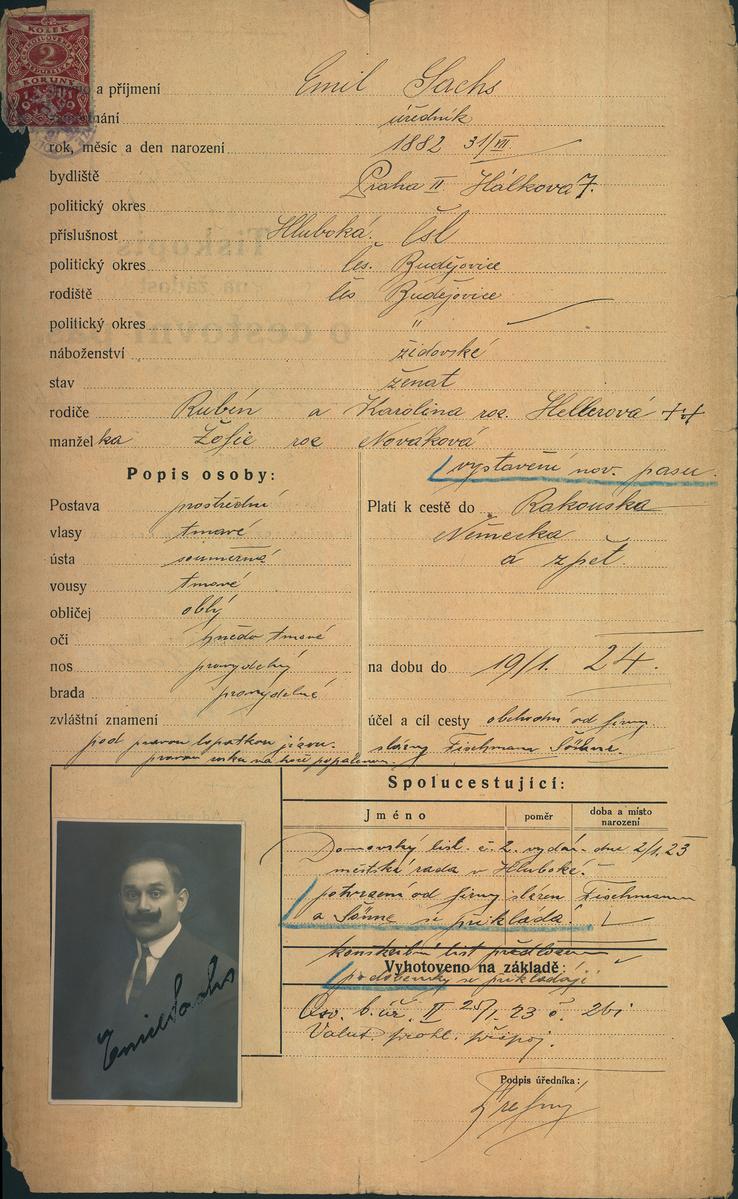 KOLEK
2
KORUNY
a příjmení Emil Sachs
úředník
rok, měsíc a den narození 1882 31/VII.
bydliště Praha II. Hálkova 7.
politický okres
příslušnost Hluboká. čsl
politický okres Čes. Budějovice
rodiště Čes Budějovice
politický okres "
náboženství židovské
stav ženat
rodiče Rubín a Karolina roz. Hellerová ++
manžel ka Žofie roz Nováková
vystavení nov. pasu.
Popis osoby:
Postava prostřední
vlasy tmavé
ústa souměrná
vousy tmavé
obličej oblý
oči hnědo tmavé
nos pravidelný
brada pravidelné
zvláštní znamení
pod pravou lopatkou jizvu.
pravou ruku na
Platí k cestě do Rakouska
Německa
a zpět.
na dobu do 19/1. 24.
účel a cíl cesty obchodní od firmy
sláren Fischmann Söhne.
Spolucestující:
Jméno poměr doba a místo narození
Domovský list č. 2. vydán dne 2/1.23
městská rada v Hluboké.
potvrzení od firmy sláren Fischmann
a Söhne se přikládá.
konskribní list předložen
Vyhotoveno na základě:
podobenky se přikládají
Osv. b. úř. II 25/1. 23 č. 261
Valut. prohl. připoj.
Podpis úředníka:
Emil Sachs